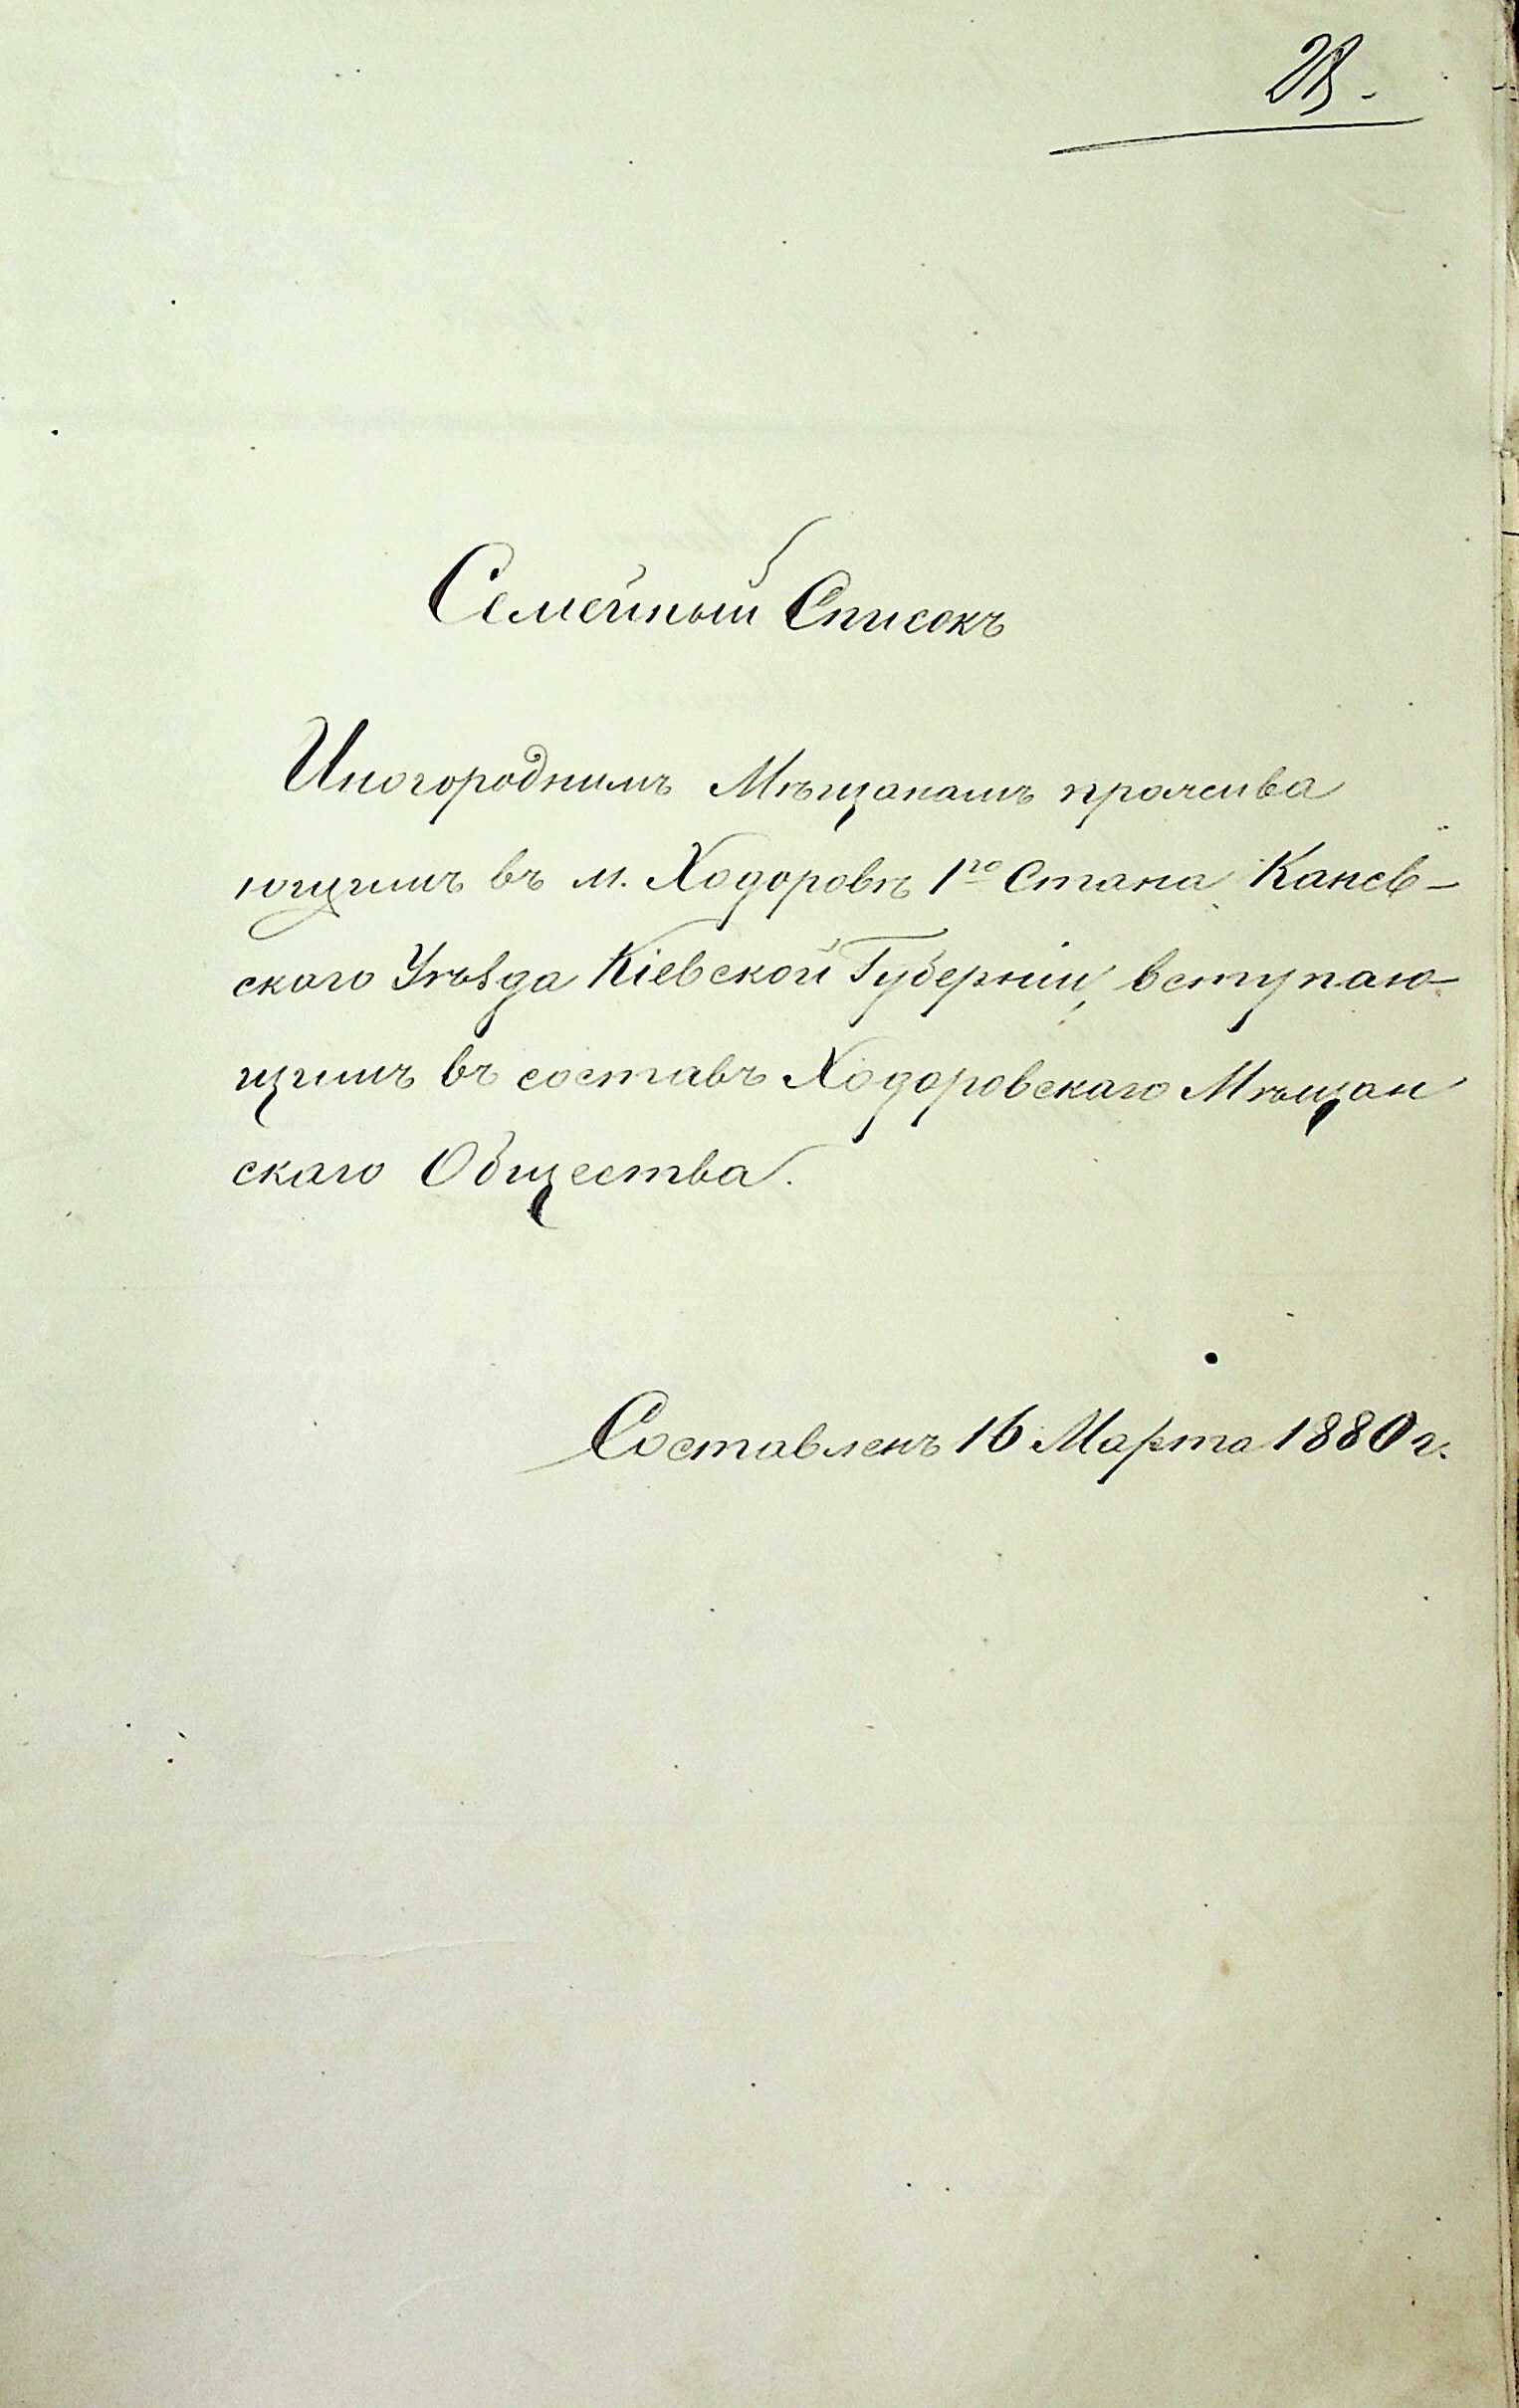 Семейный Списокъ
Иногороднимъ Мѣщанамъ прожива
ющимъ въ м. Ходоровѣ 1го Стана Канев-
ского Уѣзда Кіевской Губерніи, вступаю-
щимъ въ составъ Ходоровскаго Мѣщан
скаго Общества.
Составленъ 16 Марта 1880 г.